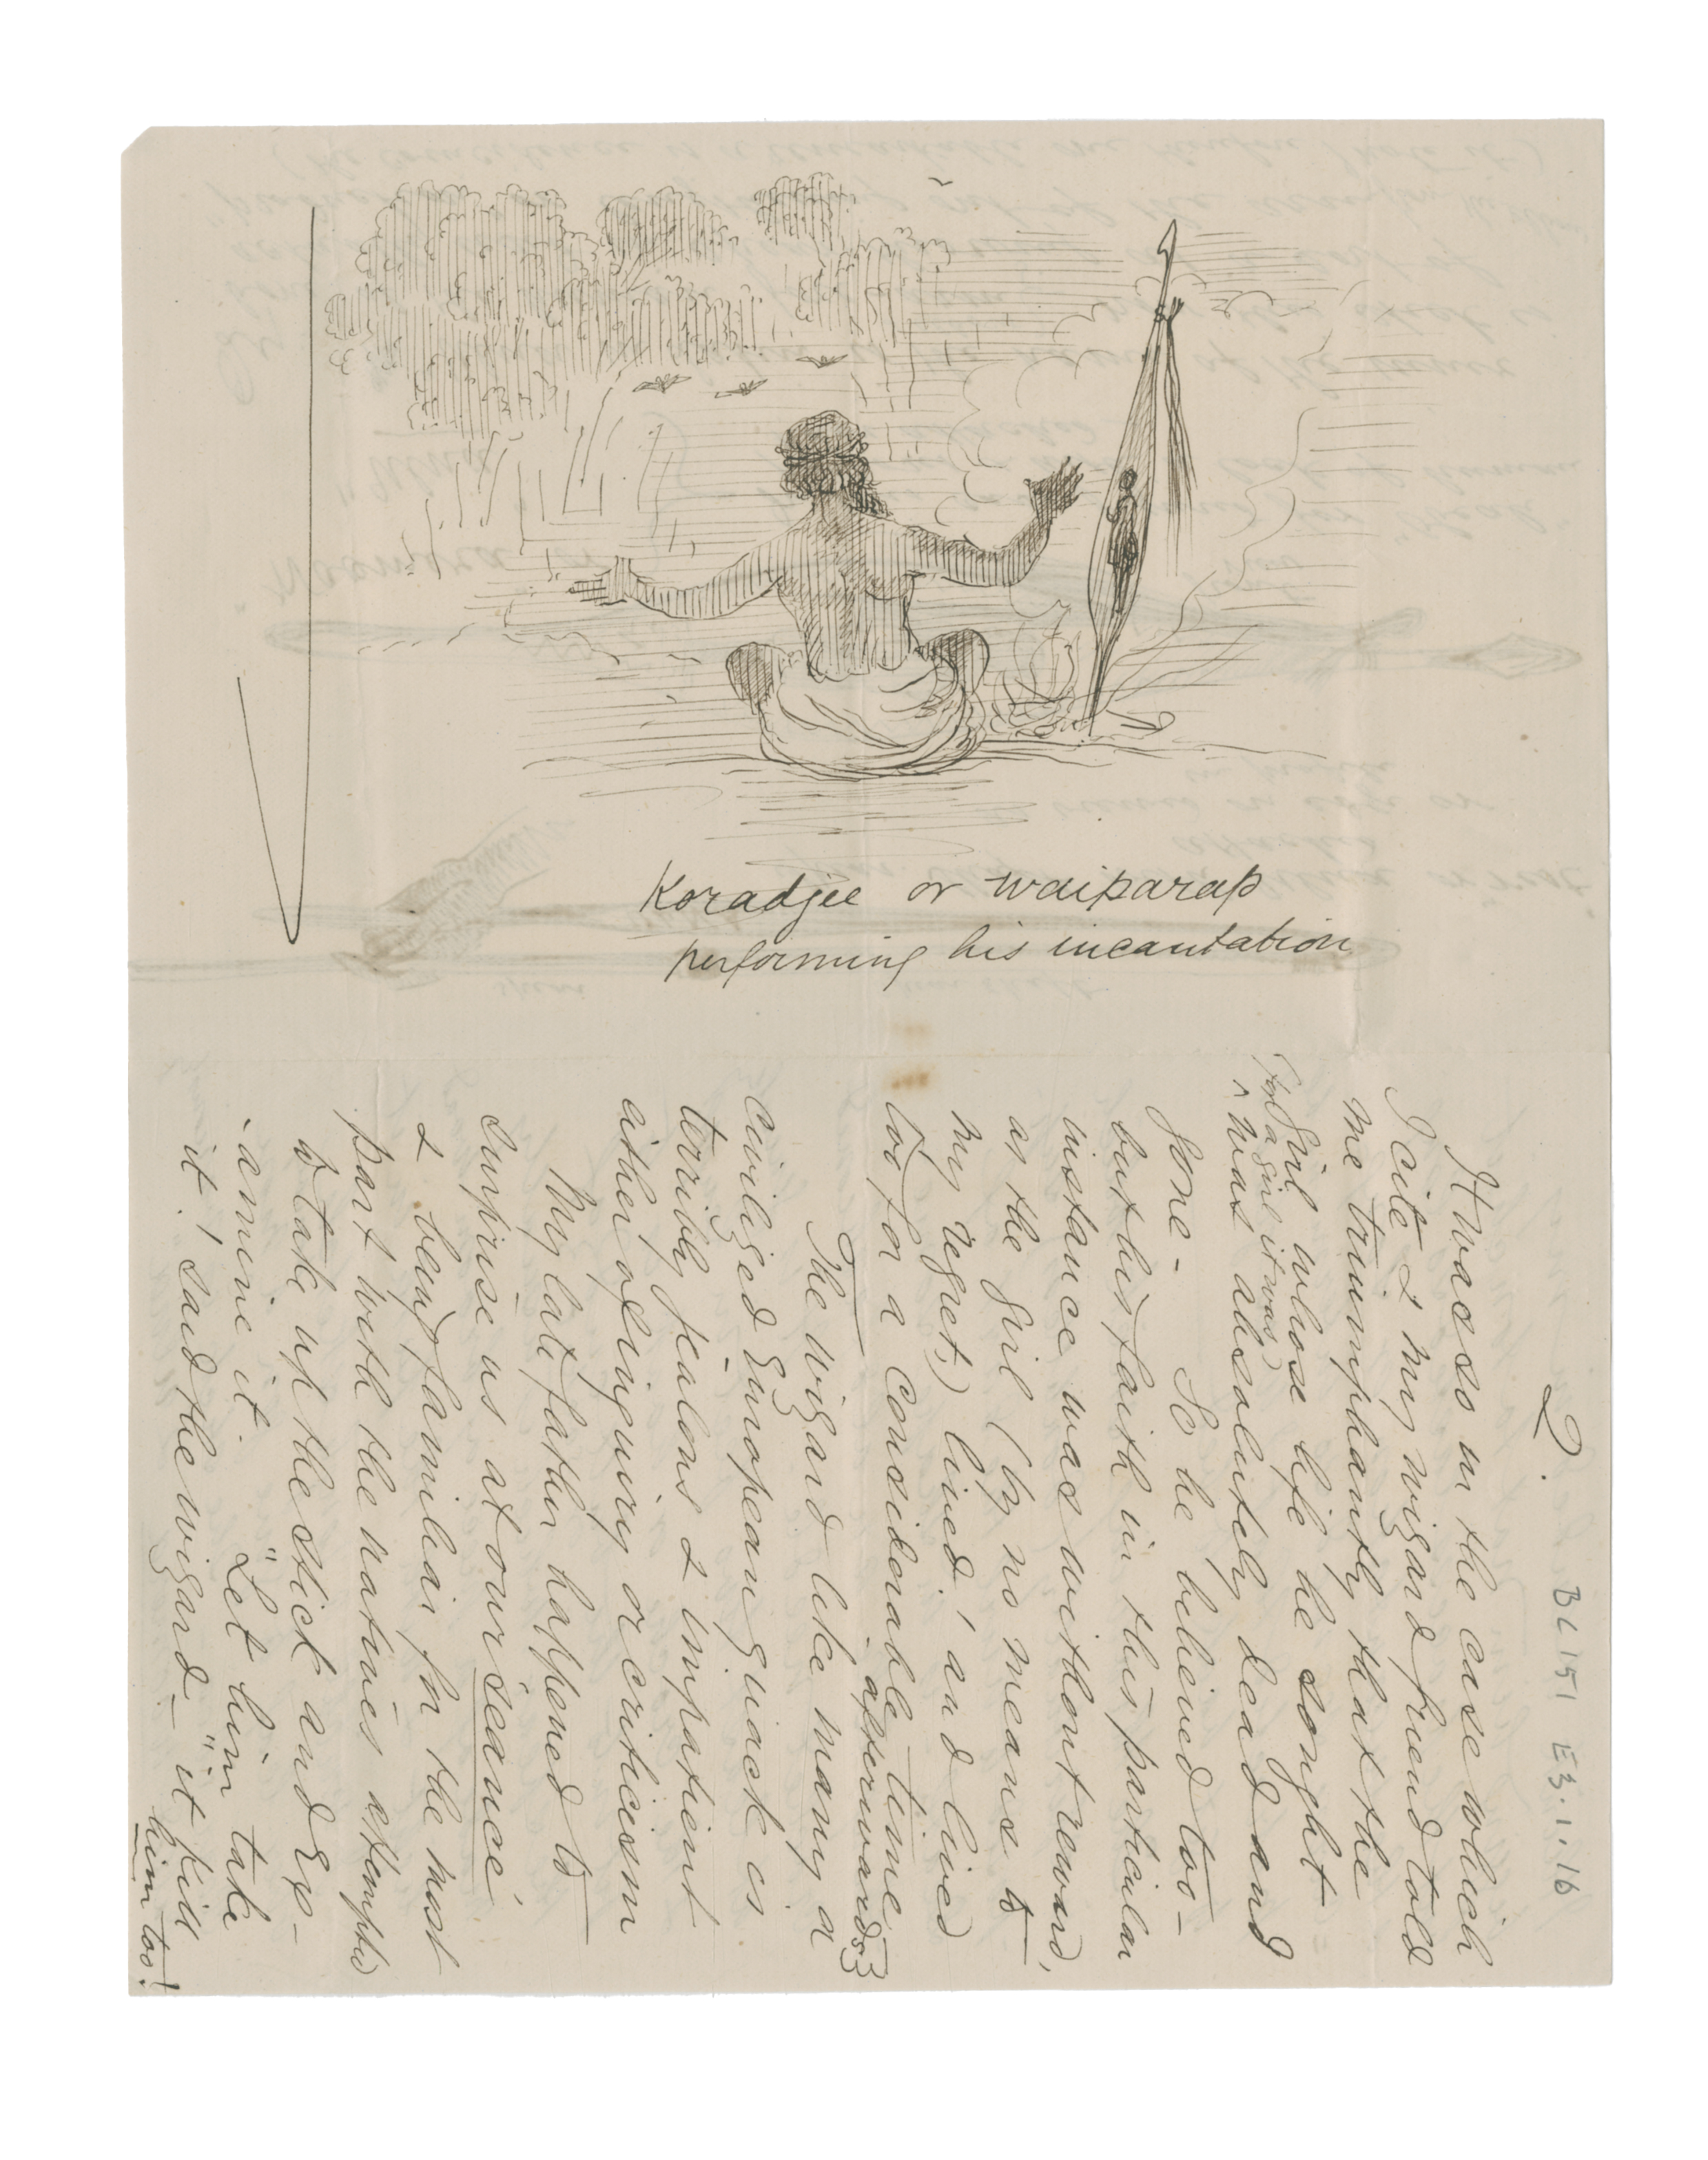 Koradjee or waiparap
performing his incantation
2.
BL 151 E3.1.16
It was so in the case which
I cite & my wizard friend told
me triumphantly that the
girl whose life he sought
(for a girl it was)
was absolutely dead and
gone - So he believed too -
but his faith in this particular
instance was without reward,
as the girl (by no means to
my regret) lived! and lived
too for a considerable time
afterwards
The wizard like many a
civilized European quack is
terribly jealous & impatient
either of inquiry or criticism
My late father happened to
surprise us at our séance
& being familiar for the most
part with the natives attempted
to take up the stick and ex-
-amine it. "Let him take
it! said the wizard - "it kill
him too!